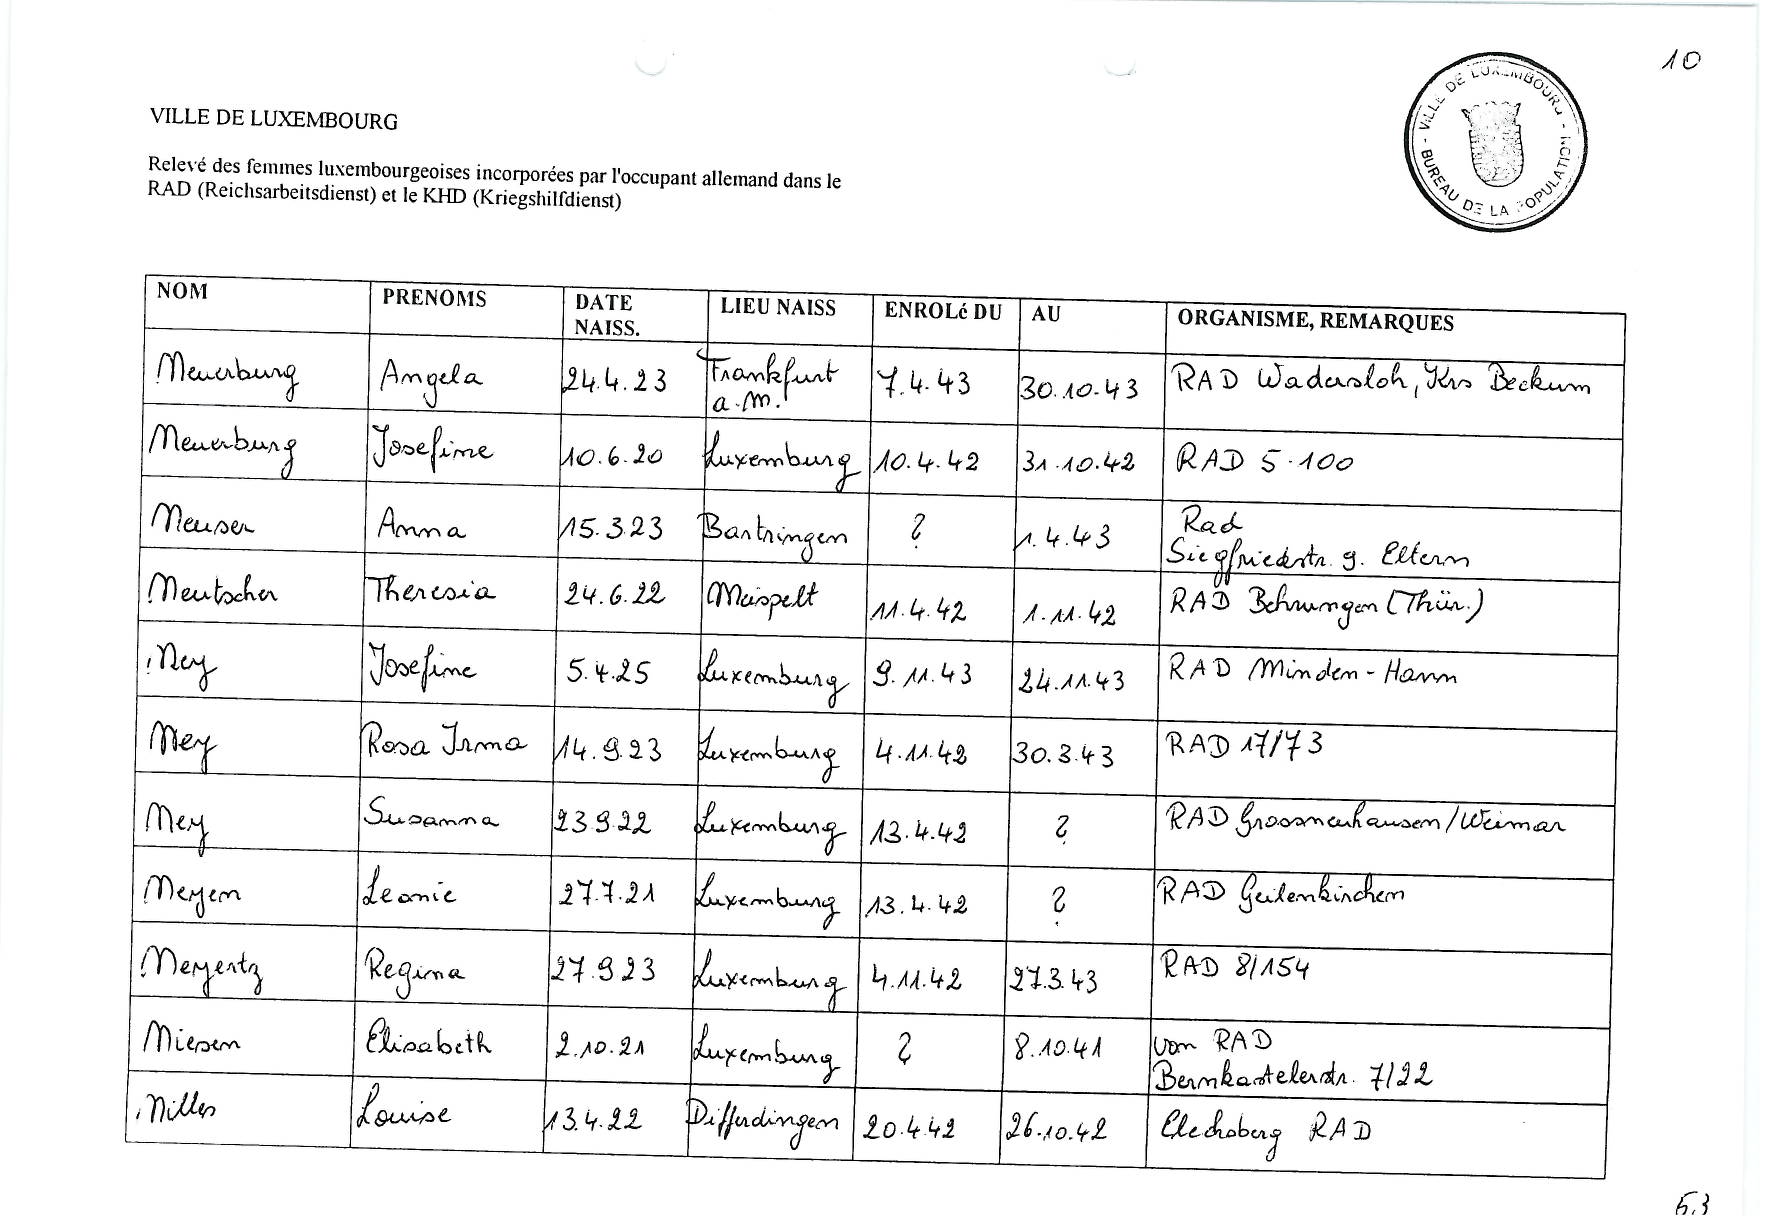 10
VILLE DE LUXEMBOURG - BUREAU DE LA POPULATION -
VILLE DE LUXEMBOURG
Relevé des femmes luxembourgeoises incorporées par l'occupant allemand dans le
RAD (Reichsarbeitsdienst) et le KHD (Kriegshilfdienst)
NOM PRENOMS DATE NAISS. LIEU NAISS ENROLé DU AU ORGANISME, REMARQUES
Meuerburg Angela 24.4.23 Frankfurt a.M. 7.4.43 30.10.43 RAD Wadersloh, Krs Beckum
Meuerburg Josefine 10.6.20 Luxemburg 10.4.42 31.10.42 RAD 5.100
Meuser Anna 15.3.23 Bartringen ? 1.4.43 Rad
Siegfriedstr. g. Eltern
Meutscher Theresia 24.6.22 Meispelt 11.4.42 1.11.42 RAD Behrungen (Thür.)
Mey Josefine 5.4.25 Luxemburg 9.11.43 24.11.43 RAD Minden-Hann
Mey Rosa Irma 14.9.23 Luxemburg 4.11.42 30.3.43 RAD 17/73
Mey Susanna 23.9.22 Luxemburg 13.4.42 ? RAD Grossneuhausen/Weimar
Meyen Leonie 27.7.21 Luxemburg 13.4.42 ? RAD Geilenkirchen
Meyertz Regina 27.9.23 Luxemburg 4.11.42 27.3.43 RAD 8/154
Miesen Elisabeth 2.10.21 Luxemburg ? 8.10.41 vom RAD
Bernkastelerstr. 7/22
Milles Louise 13.4.22 Differdingen 20.4.42 26.10.42 RAD
63